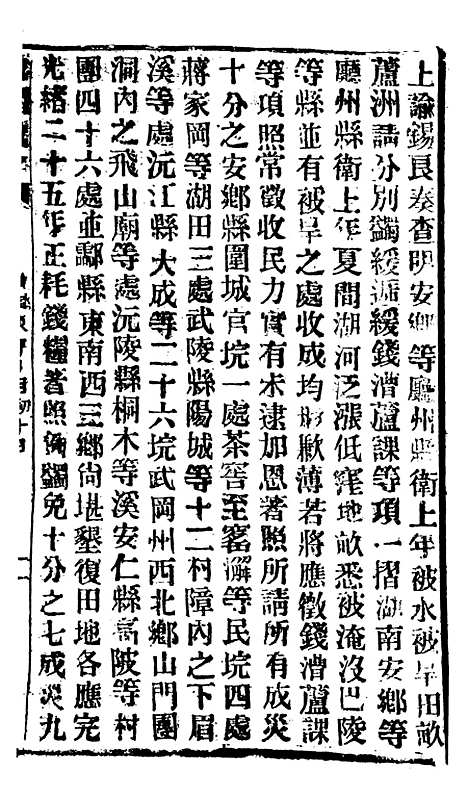 上諭錫良奏查明安鄉等廳州縣衛上年被水被旱田畝
蘆洲請分別蠲緩遞緩錢漕蘆課等項一摺湖南安鄉等
廳州縣衛上年夏間湖河泛漲低窪地畝悉被淹沒巴陵
等縣並有被旱之處收成均形歉薄若將應徵錢漕蘆課
等項照常徵收民力實有未逮加恩著照所請所有成災
十分之安鄉縣圍城官垸一處茶窖至窰獬等民垸四處
蔣家岡等湖田三處武陵縣陽城等十二村障內之下眉
溪等處沅江縣大成等二十六垸武岡州西北鄉山門團
洞內之飛山廟等處沅陵縣桐木等溪安仁縣高陂等村
團四十六處並酃縣東南西三鄉尚堪墾復田地各應完
光緒二十五年正耗錢糧著照例蠲免十分之七成災九